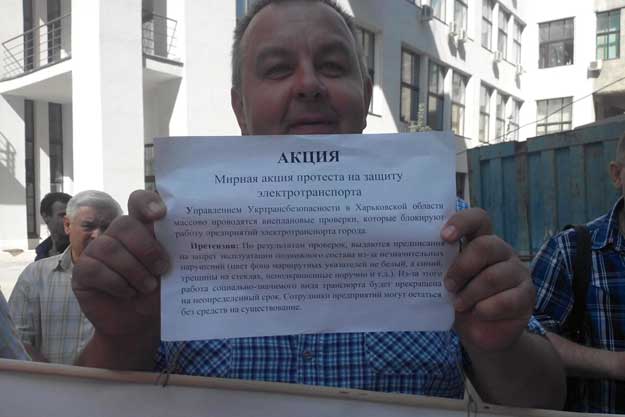 АКЦИЯ
Мирная акция протеста на защиту
электротранспорта
Управлением Укртрансбезопасности в Харьковской области
массово проводятся внеплановые проверки, которые блокируют
работу предприятий электротранспорта города.
Претензии: По результатам проверок, выдаются предписания
на запрет эксплуатации подвижного состава из-за незначительных
нарушений (цвет фона маршрутных указателей не белый, а синий,
трещины на стеклах, неизолированные поручни и т.д.). Из-за этого
работа социально-значимого вида транспорта будет прекращена
на неопределенный срок. Сотрудники предприятий могут остаться
без средств на существование.